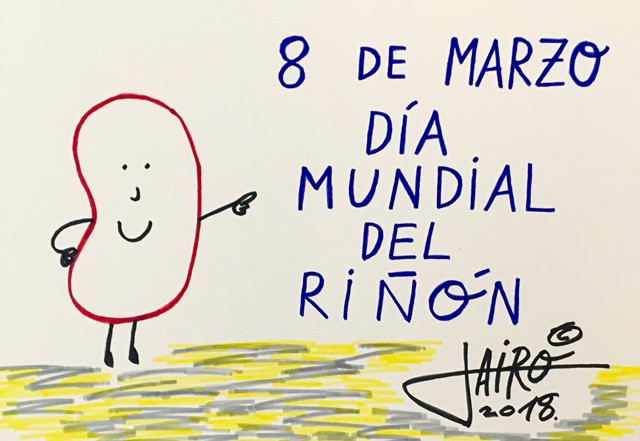 8 DE MARZO
DÍA
MUNDIAL
DEL
RIÑÓN
©
JAIRO
2018.